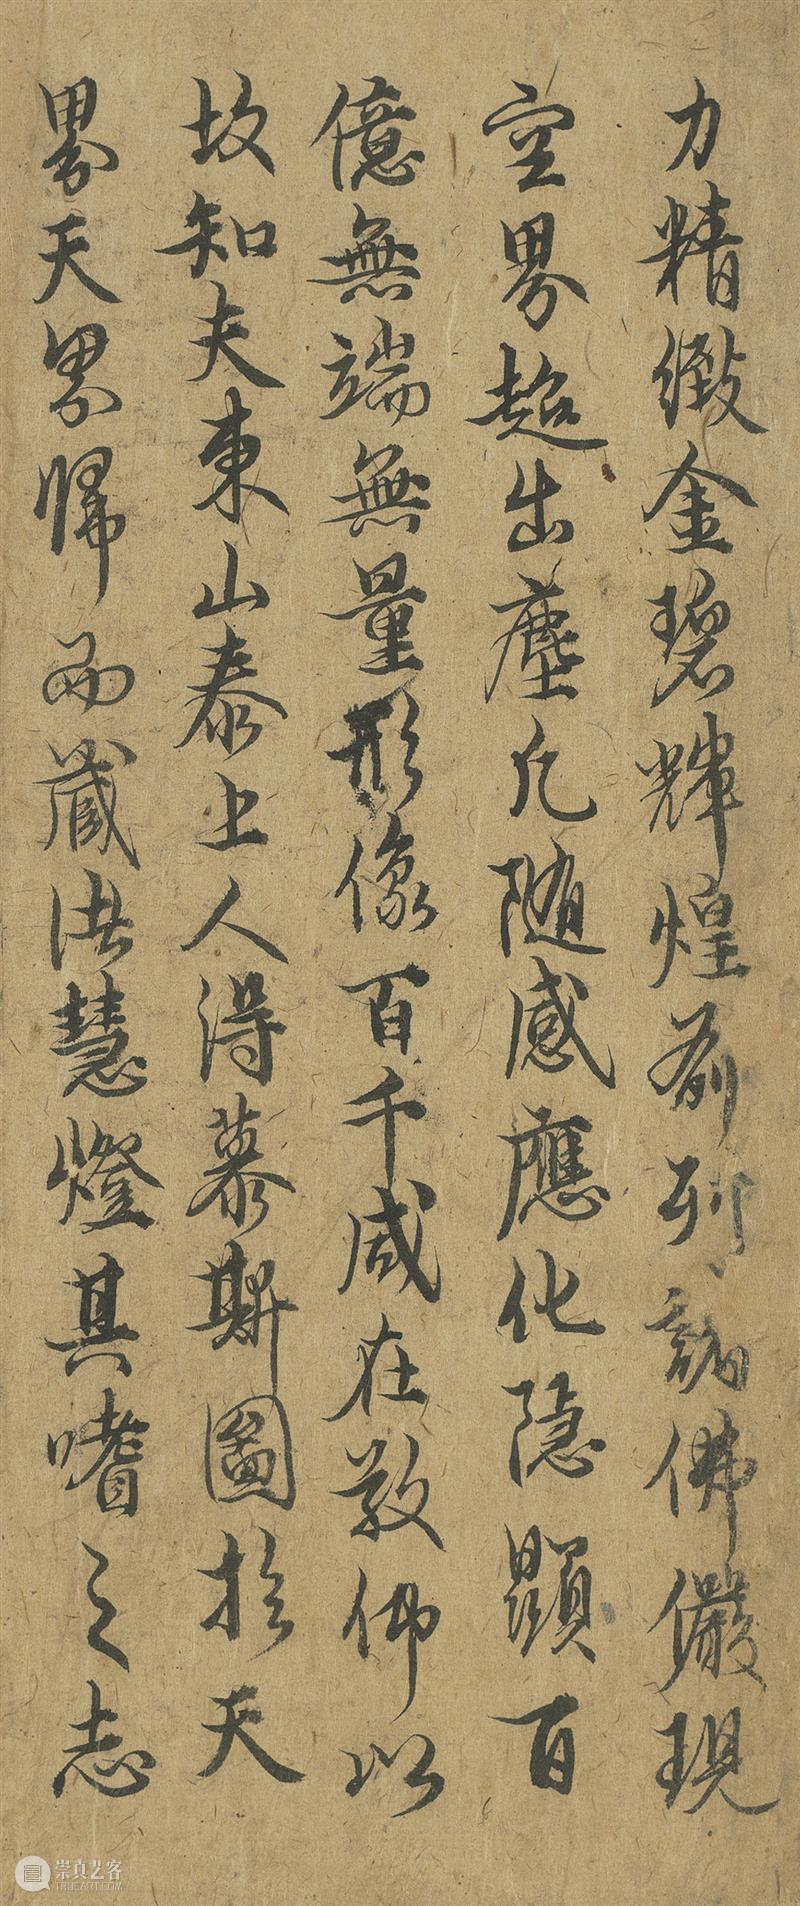 力精緻金碧輝煌前列諸佛儼現
空界超出塵凡隨感應化隱顯百
億無端無量形像百千咸在敬佛以
故知夫東山泰上人得慕斯圖於天
界天界歸而藏法慧燈其嗜之志
崇真艺客
TRUEART.COM